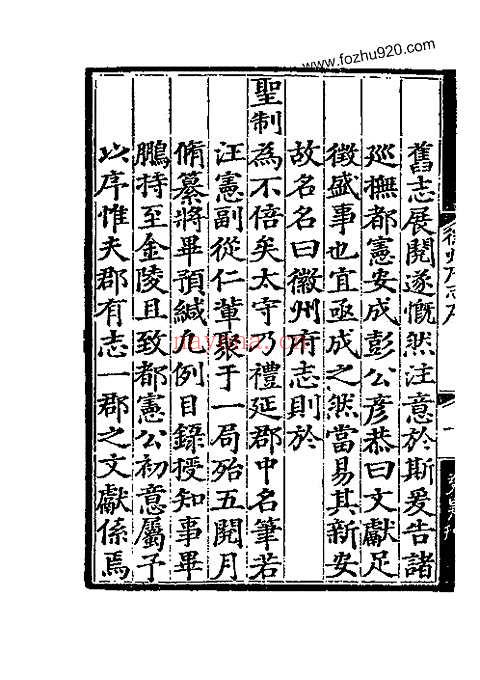 www.fozhu920.com
舊志展閱遂慨然注意於斯爰告諸
廵撫都憲安成彭公彥恭曰文獻足
徵盛事也宜亟成之然當易其新安
故名名曰徽州府志則於
聖制為不倍矣太守乃禮延郡中名筆若
汪憲副從仁輩聚于一局殆五閱月
脩纂將畢預緘凡例目錄授知事畢
鵬持至金陵且致都憲公初意屬予
以序惟夫郡有志一郡之文獻係焉